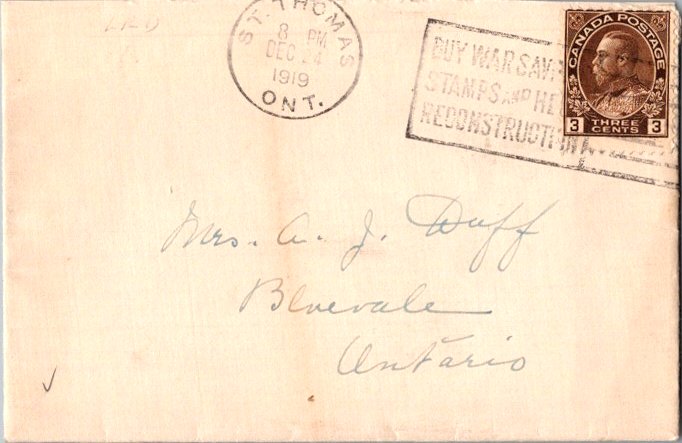 ST. THOMAS
8 PM
DEC 24
1919
ONT.
BUY WAR SAV
STAMPS AND HE
RECONSTRUCTION
CANADA POSTAGE
3 THREE CENTS 3
Mrs. A. J. Duff
Bluevale
Ontario